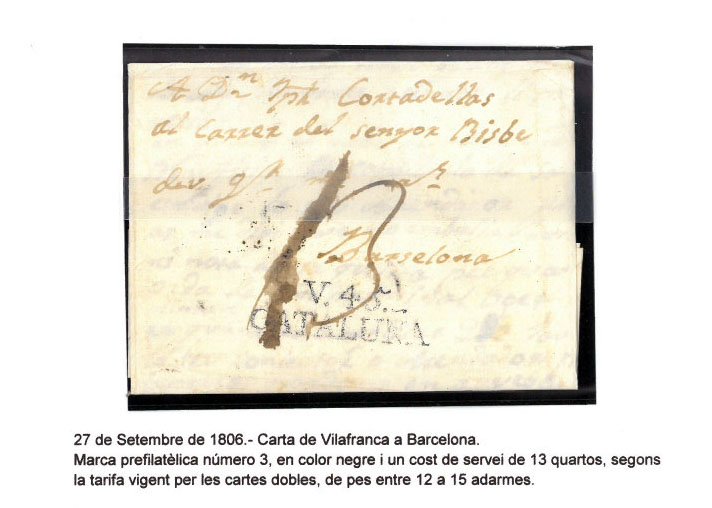 A Dn Jph Cortadellas
al Carrer del senyor Bisbe
dev
13
Barselona
V. 45.
CATALUÑA
27 de Setembre de 1806.- Carta de Vilafranca a Barcelona.
Marca prefilatèlica número 3, en color negre i un cost de servei de 13 quartos, segons
la tarifa vigent per les cartes dobles, de pes entre 12 a 15 adarmes.